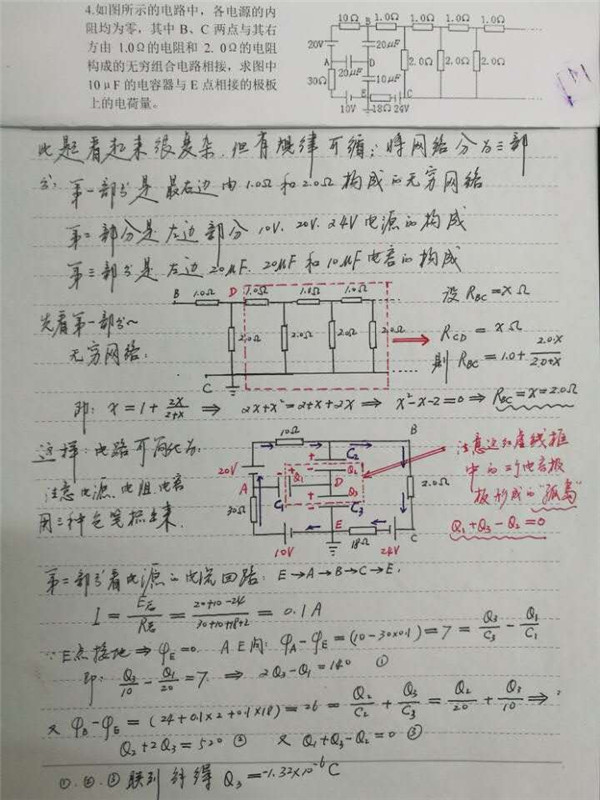 4.如图所示的电路中，各电源的内
阻均为零，其中B、C两点与其右
方由 1.0Ω的电阻和 2. 0Ω的电阻
构成的无穷组合电路相接，求图中
10μF的电容器与E点相接的极板
上的电荷量。
10Ω B 1.0Ω 1.0Ω 1.0Ω
20V 20μF 2.0Ω 2.0Ω 2.0Ω
A D
30Ω 20μF 10μF
10V E 18Ω 24V C
此题看起来很复杂，但有规律可循：将网络分为三部
分：第一部分是最右边由1.0Ω和2.0Ω构成的无穷网络
第二部分是左边部分10V、20V、24V电源的构成
第三部分是左边20μF、20μF和10μF电容的构成
B 1.0Ω D 1.0Ω 1.0Ω 1.0Ω
设RBC=xΩ
先看第一部分~
无穷网络：
2.0Ω 2.0Ω 2.0Ω 2.0Ω
RCD = xΩ
则RBC=1.0+2.0·x/2.0+x
C
即：x=1+2x/2+x ⇒ 2x+x²=2+x+2x ⇒ x²-x-2=0 ⇒ RBC=x=2.0Ω
这样：电路可简化为：
注意电源、电阻、电容
用三种色笔标出来.
10Ω B
20V C2 Q2
A Q1 D 2.0Ω
C1 Q3
30Ω C3
10V E 18Ω 24V C
注意这红虚线框
中的三个电容极
板形成的“孤岛”
Q1+Q3-Q2=0
第二部分看电源的电流回路：E→A→B→C→E.
I=E总/R总=20+10-24/30+10+18+2=0.1A
∵E点接地⇒φE=0. A.E间：φA-φE=(10-30×0.1)=7=Q3/C3-Q1/C1
即：Q3/10-Q1/20=7 ⇒ 2Q3-Q1=140 ①
又 φB-φE=(24+0.1×2+0.1×18)=26=Q2/C2+Q3/C3=Q2/20+Q3/10⇒
Q2+2Q3=520 ② 又Q1+Q3-Q2=0 ③
①.②.③联列解得 Q3=-1.32×10⁻⁶C